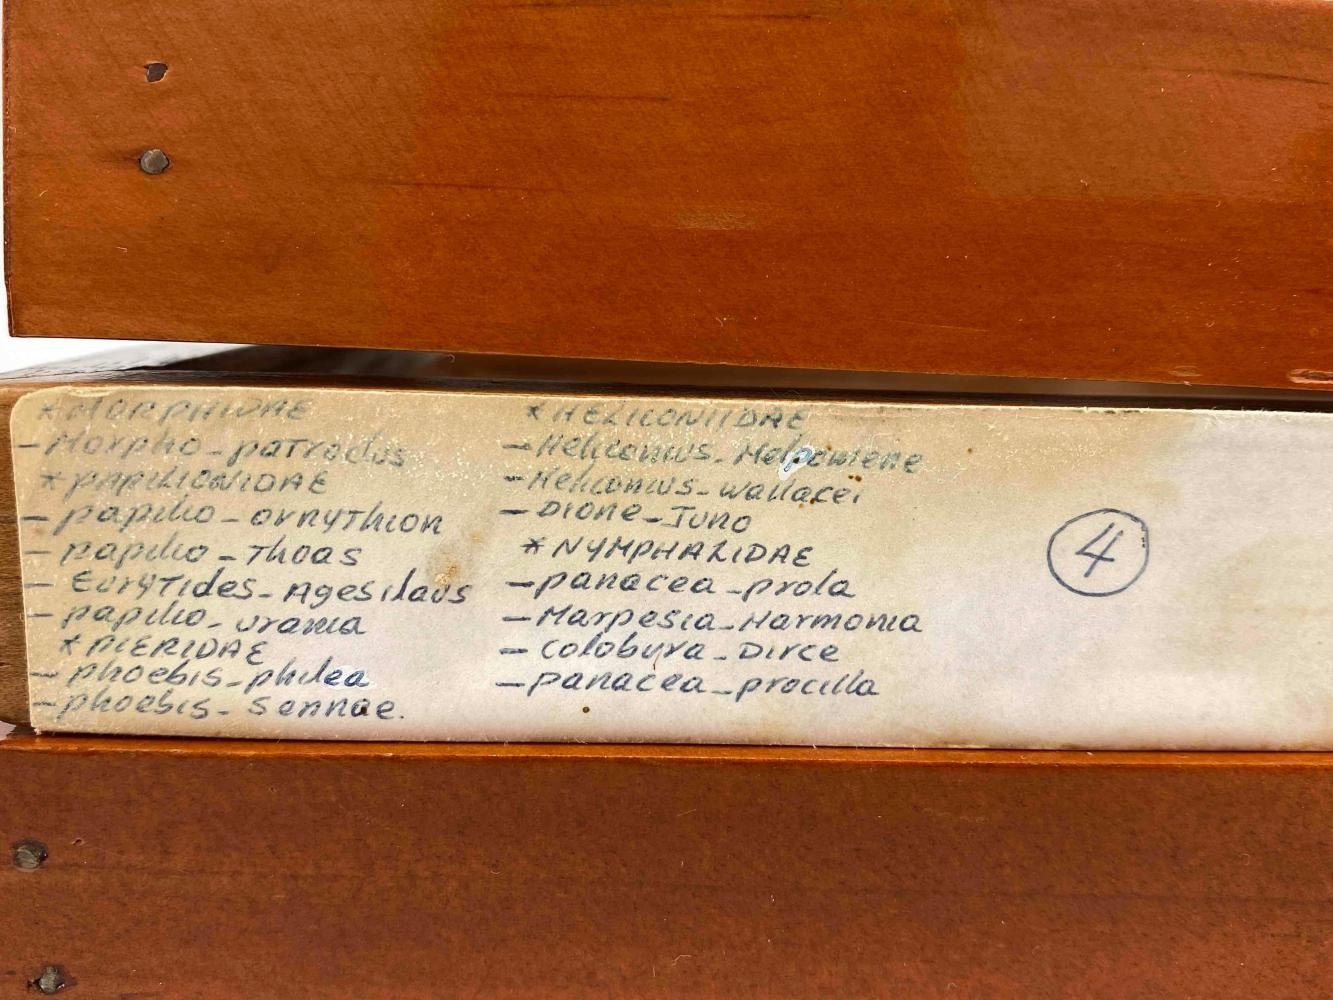 * MORPHIDAE
- Morpho - patroclus
* PAPILIONIDAE
- papilio - ornyThion
- papilio - Thoas
- EuryTides - Agesilaus
- papilio - urania
* PIERIDAE
- phoebis - philea
- phoebis - sennae.
* HELICONIIDAE
- Heliconius - Melpomene
- Heliconius - wallacei
- Dione - Juno
* NYMPHALIDAE
- panacea - prola
- Marpesia - Harmonia
- Colobura - Dirce
- panacea - procilla
4